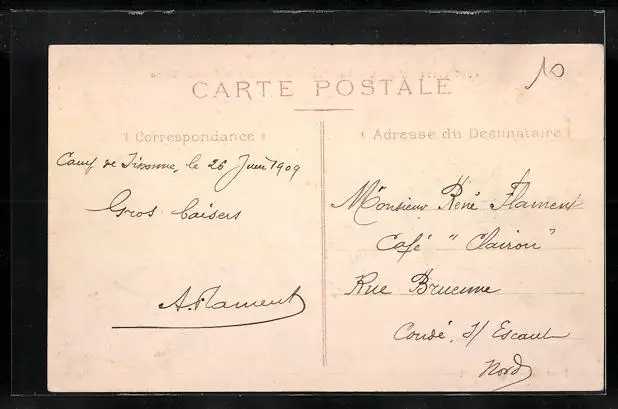 10
CARTE POSTALE
Correspondance
Camp de Sissonne, le 26 Juin 1909
Gros baisers
A. Flament
Adresse du Destinataire
Monsieur René Flament
Café "Clairon"
Rue Bruenne
Condé, s/ Escaut
Nord